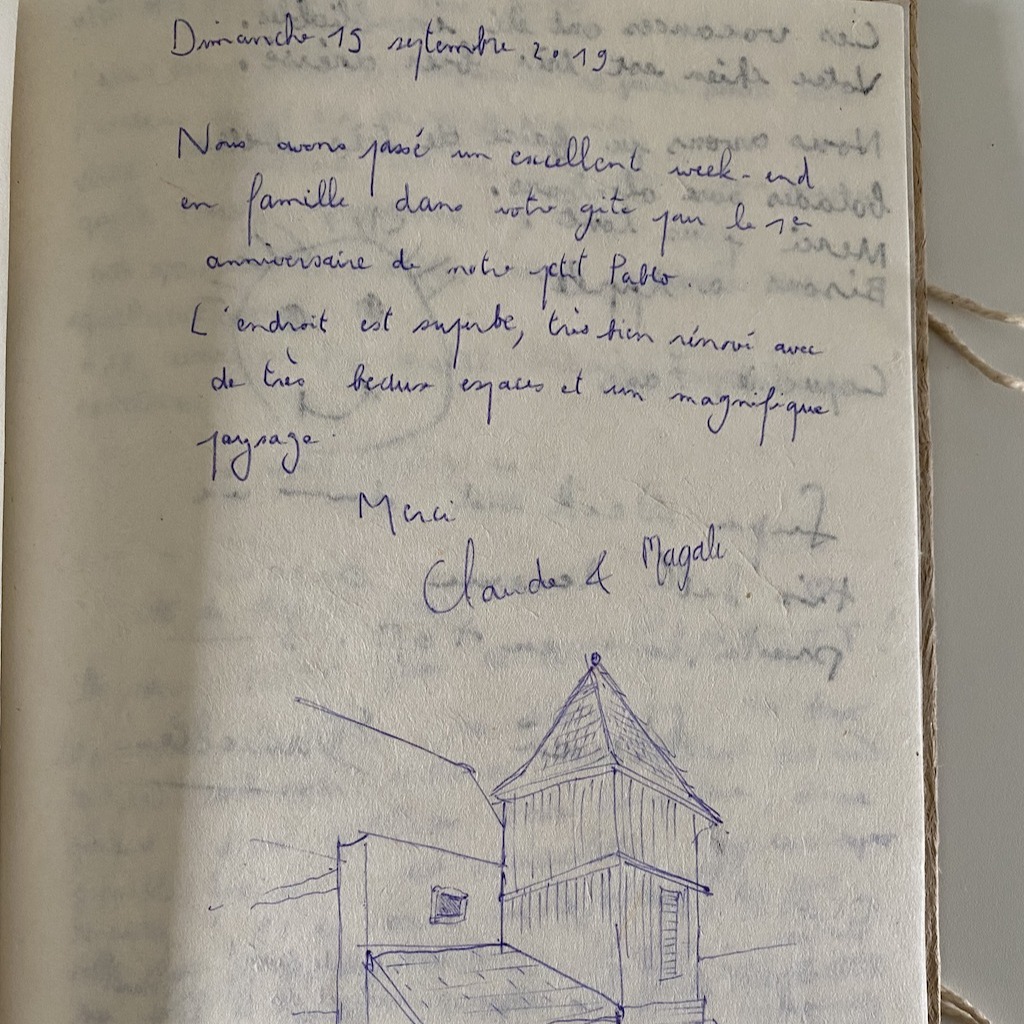 Dimanche 15 septembre 2019
Nous avons passé un excellent week-end
en famille dans votre gîte pour le 1er
anniversaire de notre petit Pablo.
L'endroit est superbe, très bien rénové avec
de très beaux espaces et un magnifique
paysage.
Merci
Claude & Magali